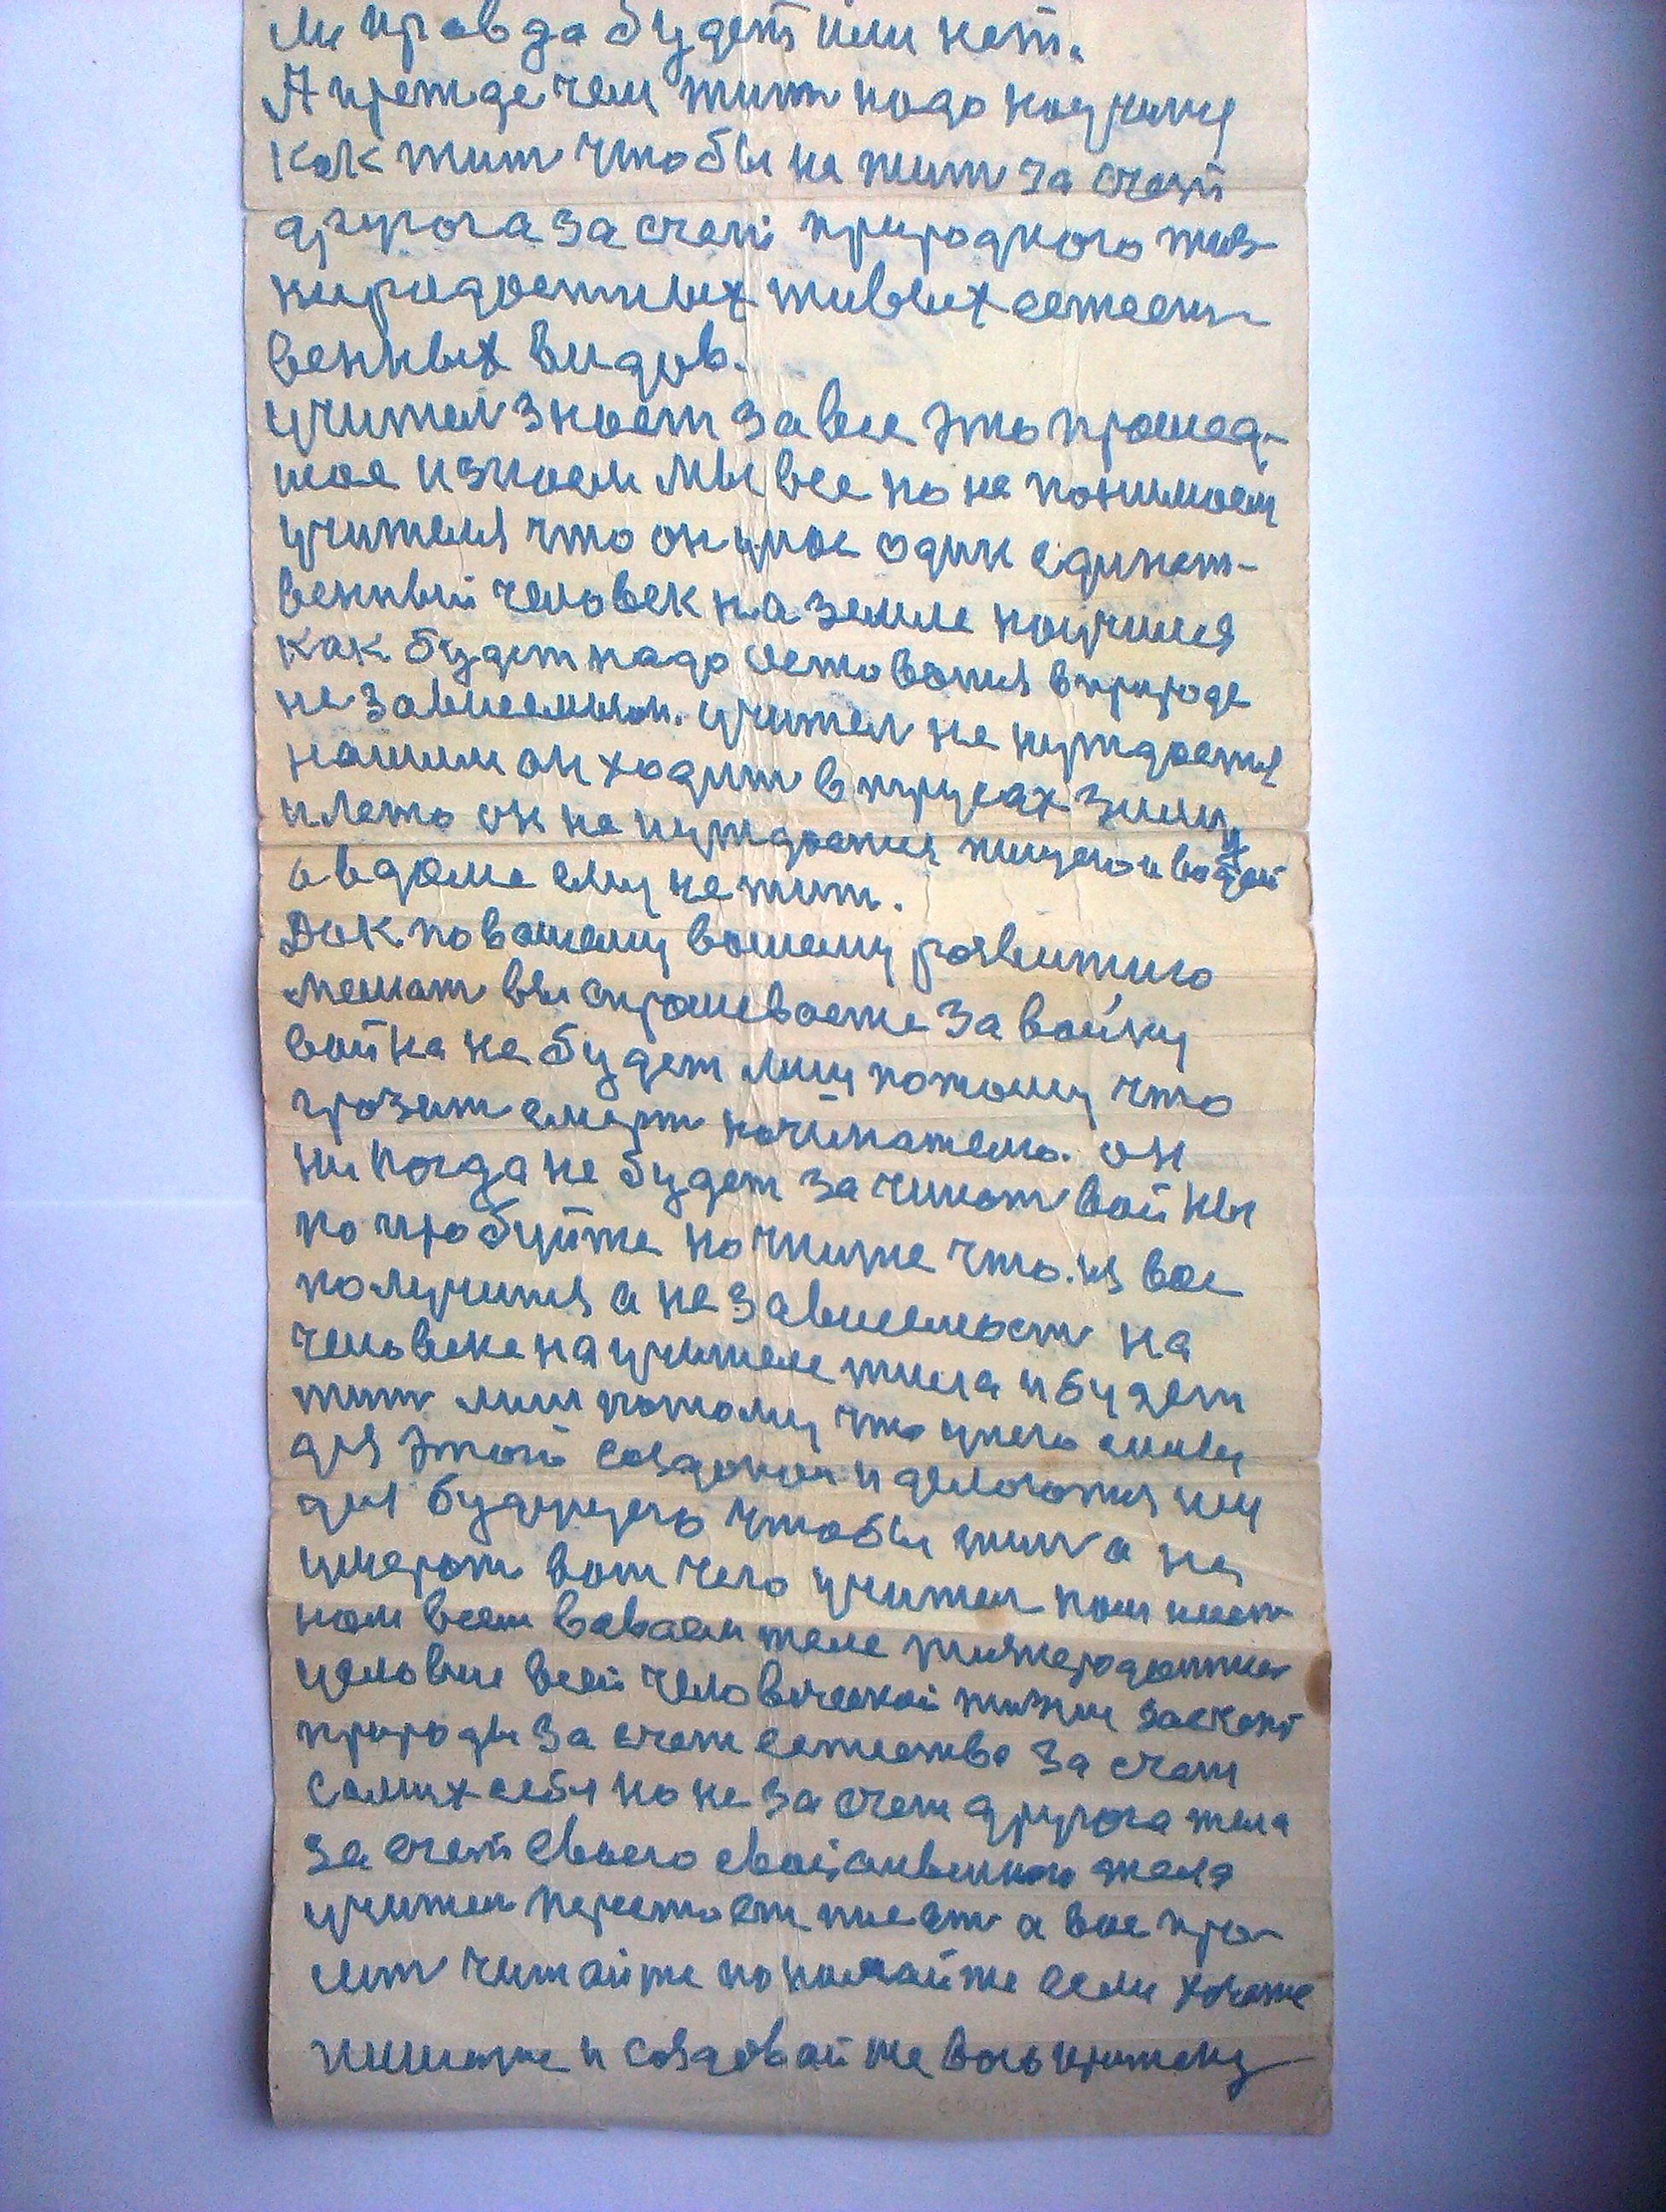 ли правда будет или нет.
А прежде чем жит надо научится
как жит чтобы не жит за счет
другога за счет природного жив
нирадостных живых естест
венных видов.
учител знает за все это прошед-
шое и знаем мы все но не понимаем
учителя что он унас один единст-
венный человек на земле научился
как будет надо оставатся в природе
не зависемым. учител не нуждается
нашим он ходит в трусах зиму
и лето он не нуждается пищею и водой
а в доме ему не жит.
Дак по вашему вашему развитию
мешат вы спрашеваете за войну
война не будет лиш потому что
грозит смерт начинателю. он
ни когда не будет зачинат войны
попробуйте начните что. из вас
получится а не зависемост на
человеке на учителе жила и будет
жит лиш потому что унего силы
для этого созданы и делаются им
для будущего чтобы жит а не
умерат вот чего учител нам
нам всем в своем теле
условие всей человеческой жизни за счет
природы за счет естества за счет
самих себя но не за счет другога тела
за счет своего тела
учител перестает писат а вас про-
сит читайте понимайте если хочете
пишите и создавайте